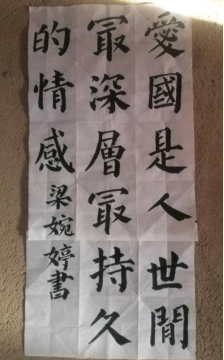 愛國是人世間
最深層最持久
的情感
梁婉婷書